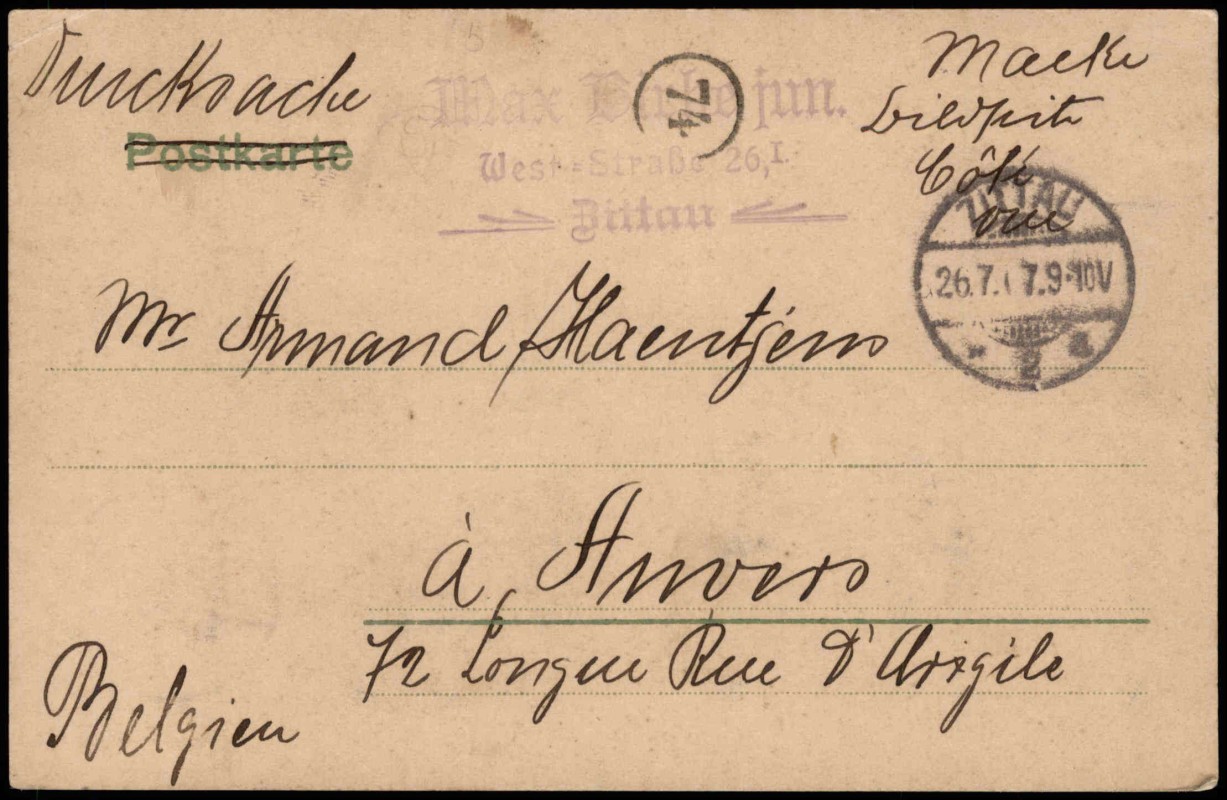 Drucksache
Postkarte
Max jun.
West-Straße 26, I.
Zittau
74
Marke
Bildseite
Côté
vue
ZITTAU
26.7. 7.9-10V
* 2 a
Mr Armand Haentjens
à Anvers
72 Longue Rue D'Argile
Belgien